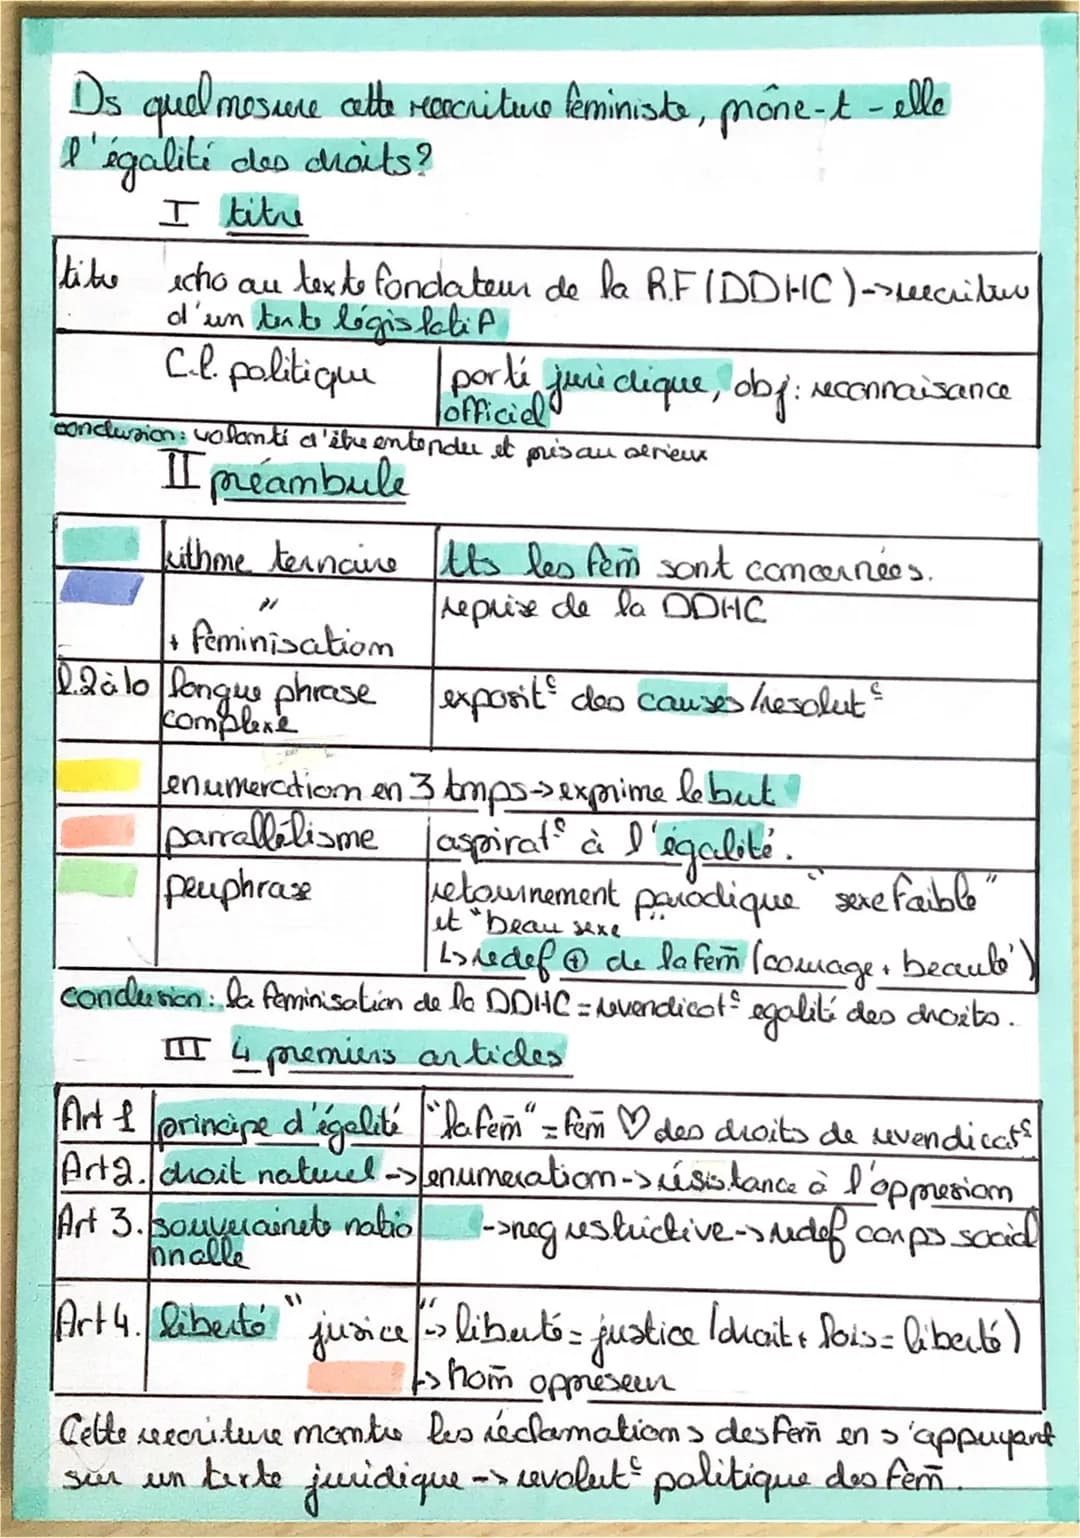 Ds quel mesure cette reecriture feministe, prône-t-elle
l'égalité des droits?
I titre
titre echo au texte fondateur de la R.F (DDHC) -> reecriture
d'un texte législatif
C.l. politique porté juridique, obj: reconnaisance
officiel
conclusion: volonté d'être entendu et pris au serieux
II préambule
rithme ternaire tts les fem̄ sont concernées.
" reprise de la DDHC
+ féminisation
l.2 à 10 longue phrase exposit° des causes/resolut°
complexe
enumeration en 3 tmps -> exprime le but
parrallélisme aspirat° à l'égalité.
periphrase retournement parodique "sexe faible"
et "beau sexe
↳ redef ⊕ de la fem̄ (courage + beauté)
conclusion: la feminisation de la DDHC = revendicat° egalité des droits.
III 4 premiers articles
Art 1 principe d'égalité "la fem̄" = fem̄ ♡ des droits de revendicat°
Art 2. droit naturel -> enumeration -> résistance à l'oppresion
Art 3. souveraineté natio -> neg restrictive -> redef corps social
nnalle
Art 4. liberté "jusice" -> liberté = justice (droit + lois = liberté)
-> hom̄ oppreseur
Cette reecriture montre les réclamations des fem̄ en s'appuyant
sur un texte juridique -> revolut° politique des fem̄.